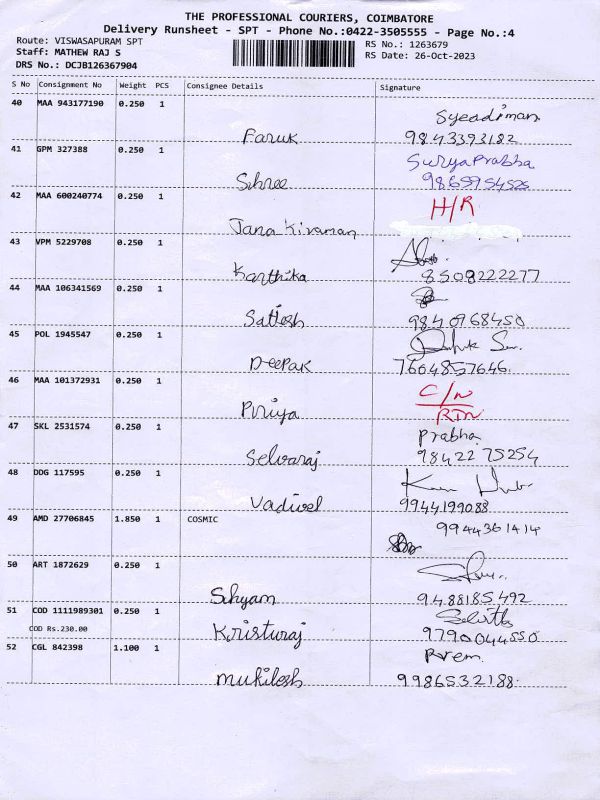 THE PROFESSIONAL COURIERS, COIMBATORE
Delivery Runsheet - SPT - Phone No.:0422-3505555 - Page No.:4
Route: VISWASAPURAM SPT
RS No.: 1263679
Staff: MATHEW RAJ S
RS Date: 26-Oct-2023
DRS No.: DCJB126367904
S No Consignment No Weight PCS Consignee Details Signature
40 MAA 943177190 0.250 1
Syeadiman
Faruk 9843393182
41 GPM 327388 0.250 1
SuryaPrabha
Sihree 9865954525
42 MAA 600240774 0.250 1
H/R
Jana Kiraman
43 VPM 5229708 0.250 1
Karthika 8508222277
44 MAA 106341569 0.250 1
Sattosh 9840768450
45 POL 1945547 0.250 1
Deepak 7604857646.
46 MAA 101372931 0.250 1
C/N
Piriya RTN
47 SKL 2531574 0.250 1
Prabha
Selvaraj 98422 75254
48 DDG 117595 0.250 1
Vadivel 9944199088
49 AMD 27706845 1.850 1 COSMIC
9944361414
50 ART 1872629 0.250 1
Sihyam 9488185492
51 COD 1111989301 0.250 1
COD Rs.230.00
Kristuraj 9790044550
52 CGL 842398 1.100 1
Prem.
Mukilesh 9986532188.